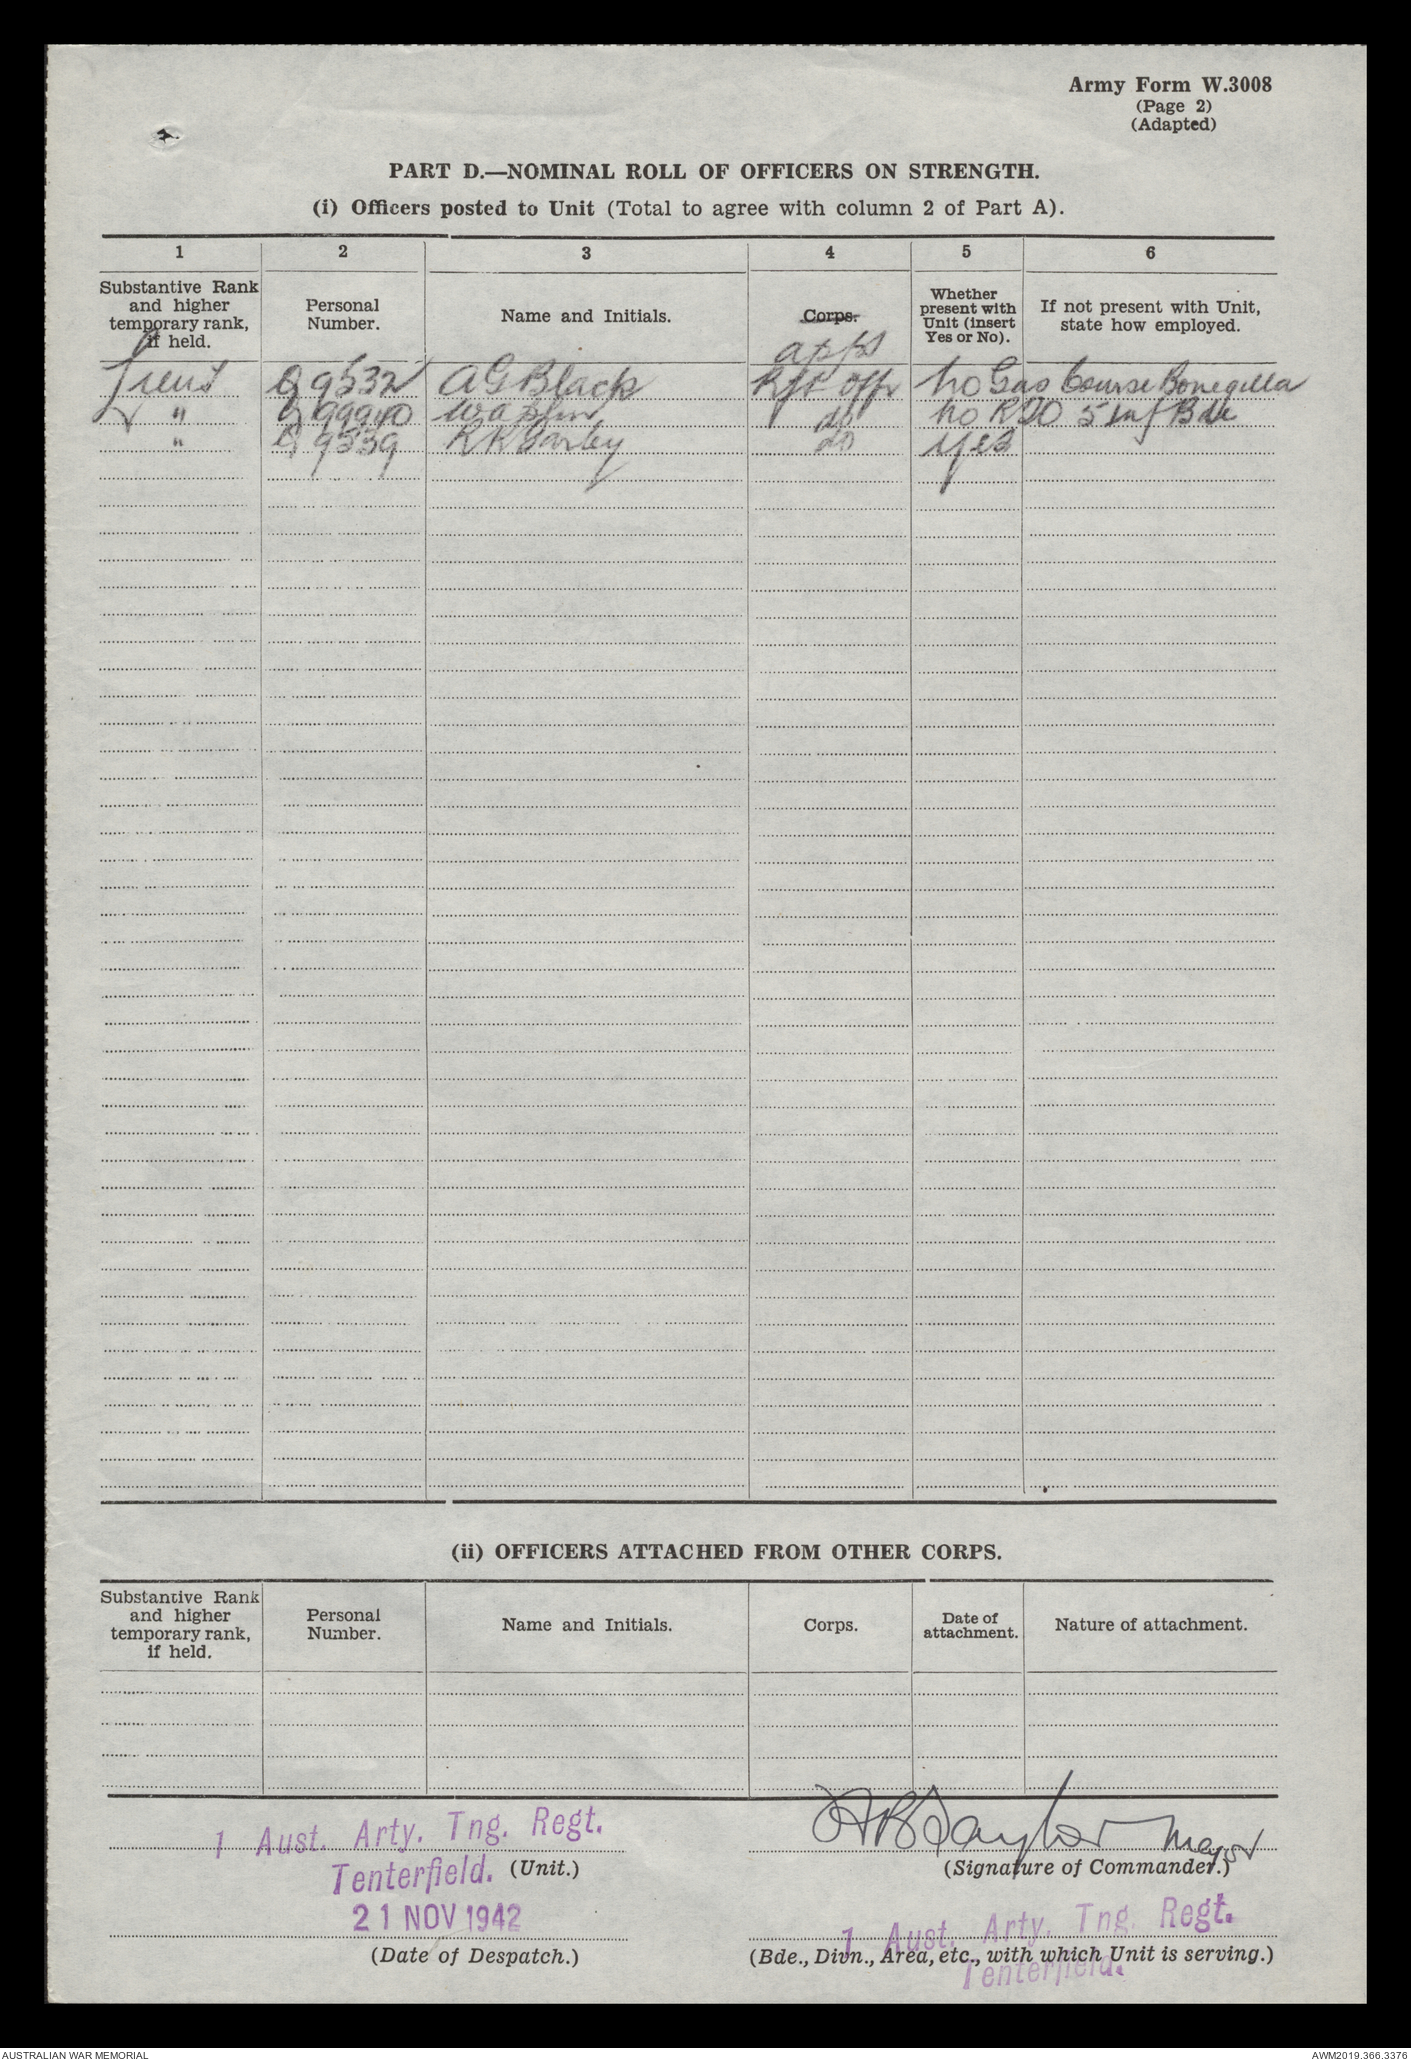 Army Form W.3008
(Page 2)
(Adapted)
PART D.—NOMINAL ROLL OF OFFICERS ON STRENGTH.
(i) Officers posted to Unit (Total to agree with column 2 of Part A).
1 2 3 4 5 6
Substantive Rank and higher temporary rank, if held. Personal Number. Name and Initials. Corps. Whether present with Unit (insert Yes or No). If not present with Unit, state how employed.
appt
Lieut Q 9532 A G Black Rft Offr No Gas Course Bonegilla
" Q 99940 W A do No RDO 5 Inf Bde
" Q 9539 R R do Yes
(ii) OFFICERS ATTACHED FROM OTHER CORPS.
Substantive Rank and higher temporary rank, if held. Personal Number. Name and Initials. Corps. Date of attachment. Nature of attachment.
1 Aust. Arty. Tng. Regt. Taylor Major
Tenterfield. (Unit.) (Signature of Commander.)
21 NOV 1942 1 Aust. Arty. Tng. Regt.
(Date of Despatch.) (Bde., Divn., Area, etc., with which Unit is serving.)
Tenterfield.
AUSTRALIAN WAR MEMORIAL AWM2019.366.3376